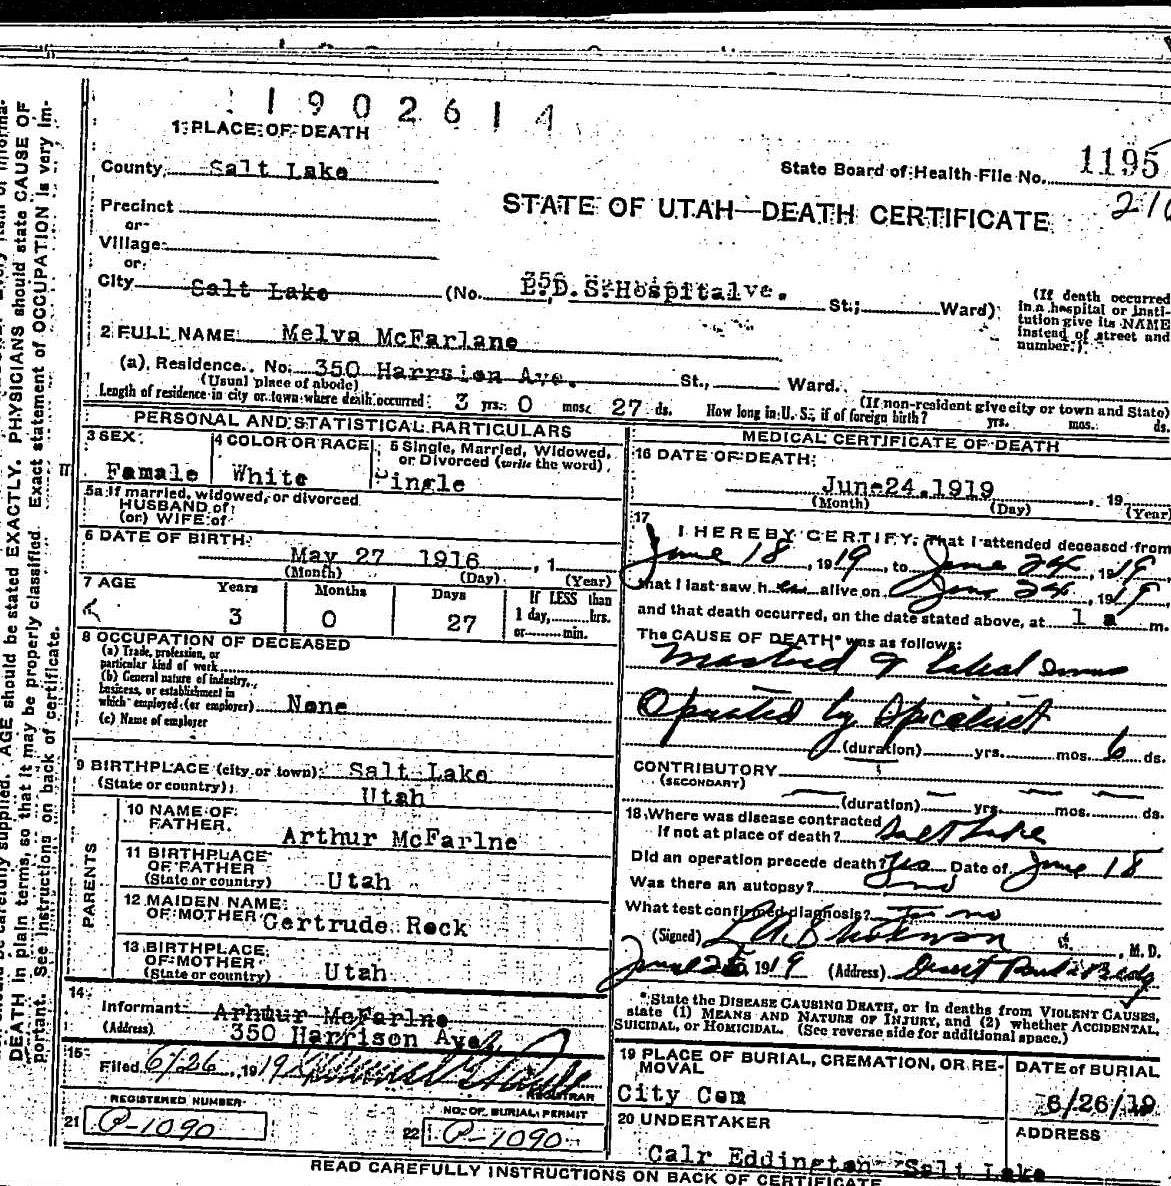 1902614
1 PLACE OF DEATH
State Board of Health File No. 1195
County Salt Lake
STATE OF UTAH—DEATH CERTIFICATE
Precinct
or
Village
or
City Salt Lake (No. L.D.S. Hospital St.; Ward)
(If death occurred in a hospital or insti-
tution give its NAME
instead of street and
number.)
2 FULL NAME Melva McFarlane
(a) Residence. No. 350 Harrsion Ave. St., Ward.
(Usual place of abode) (If non-resident give city or town and State)
Length of residence in city or town where death occurred 3 yrs. 0 mos. 27 ds. How long in U. S. if of foreign birth? yrs. mos. ds.
PERSONAL AND STATISTICAL PARTICULARS
3 SEX
Famale
4 COLOR OR RACE
White
5 Single, Married, Widowed,
or Divorced (write the word)
Single
5a If married, widowed, or divorced
HUSBAND of
(or) WIFE of
6 DATE OF BIRTH
May 27 1916, 1
(Month) (Day) (Year)
7 AGE Years Months Days If LESS than
1 day, hrs.
or min.
3 0 27
8 OCCUPATION OF DECEASED
(a) Trade, profession, or
particular kind of work
(b) General nature of industry,
business, or establishment in
which employed (or employer) None
(c) Name of employer
9 BIRTHPLACE (city or town) Salt Lake
(State or country) Utah
PARENTS
10 NAME OF
FATHER
Arthur McFarlne
11 BIRTHPLACE
OF FATHER
(State or country) Utah
12 MAIDEN NAME
OF MOTHER Gertrude Rock
13 BIRTHPLACE
OF MOTHER
(State or country) Utah
14
Informant Arhtur McFarlne
(Address) 350 Harrison Ave.
15
Filed 6/26, 191
REGISTRAR
REGISTERED NUMBER
21 P-1090
NO. OF BURIAL PERMIT
22 P-1090
MEDICAL CERTIFICATE OF DEATH
16 DATE OF DEATH
June 24. 1919, 19
(Month) (Day) (Year)
17
I HEREBY CERTIFY, That I attended deceased from
June 18, 1919, to June 24, 1919,
that I last saw her alive on June 24, 1919
and that death occurred, on the date stated above, at 1 a m.
The CAUSE OF DEATH* was as follows:
Mastoid &
Operated by Specialist
(duration) yrs. mos. 6 ds.
CONTRIBUTORY
(SECONDARY)
(duration) yrs. mos. ds.
18 Where was disease contracted
If not at place of death? Salt Lake
Did an operation precede death? Yes Date of June 18
Was there an autopsy? no
What test confirmed diagnosis?
(Signed) , M. D.
June 25, 1919 (Address)
*State the DISEASE CAUSING DEATH, or in deaths from VIOLENT CAUSES,
state (1) MEANS AND NATURE OF INJURY, and (2) whether ACCIDENTAL,
SUICIDAL, or HOMICIDAL. (See reverse side for additional space.)
19 PLACE OF BURIAL, CREMATION, OR RE-
MOVAL
City Cem
DATE OF BURIAL
6/26/19
20 UNDERTAKER
Calr Eddington Salt Lake
ADDRESS
READ CAREFULLY INSTRUCTIONS ON BACK OF CERTIFICATE
AGE should be stated EXACTLY. PHYSICIANS should state CAUSE OF
DEATH in plain terms, so that it may be properly classified. Exact statement of OCCUPATION is very im-
portant. See instructions on back of certificate.